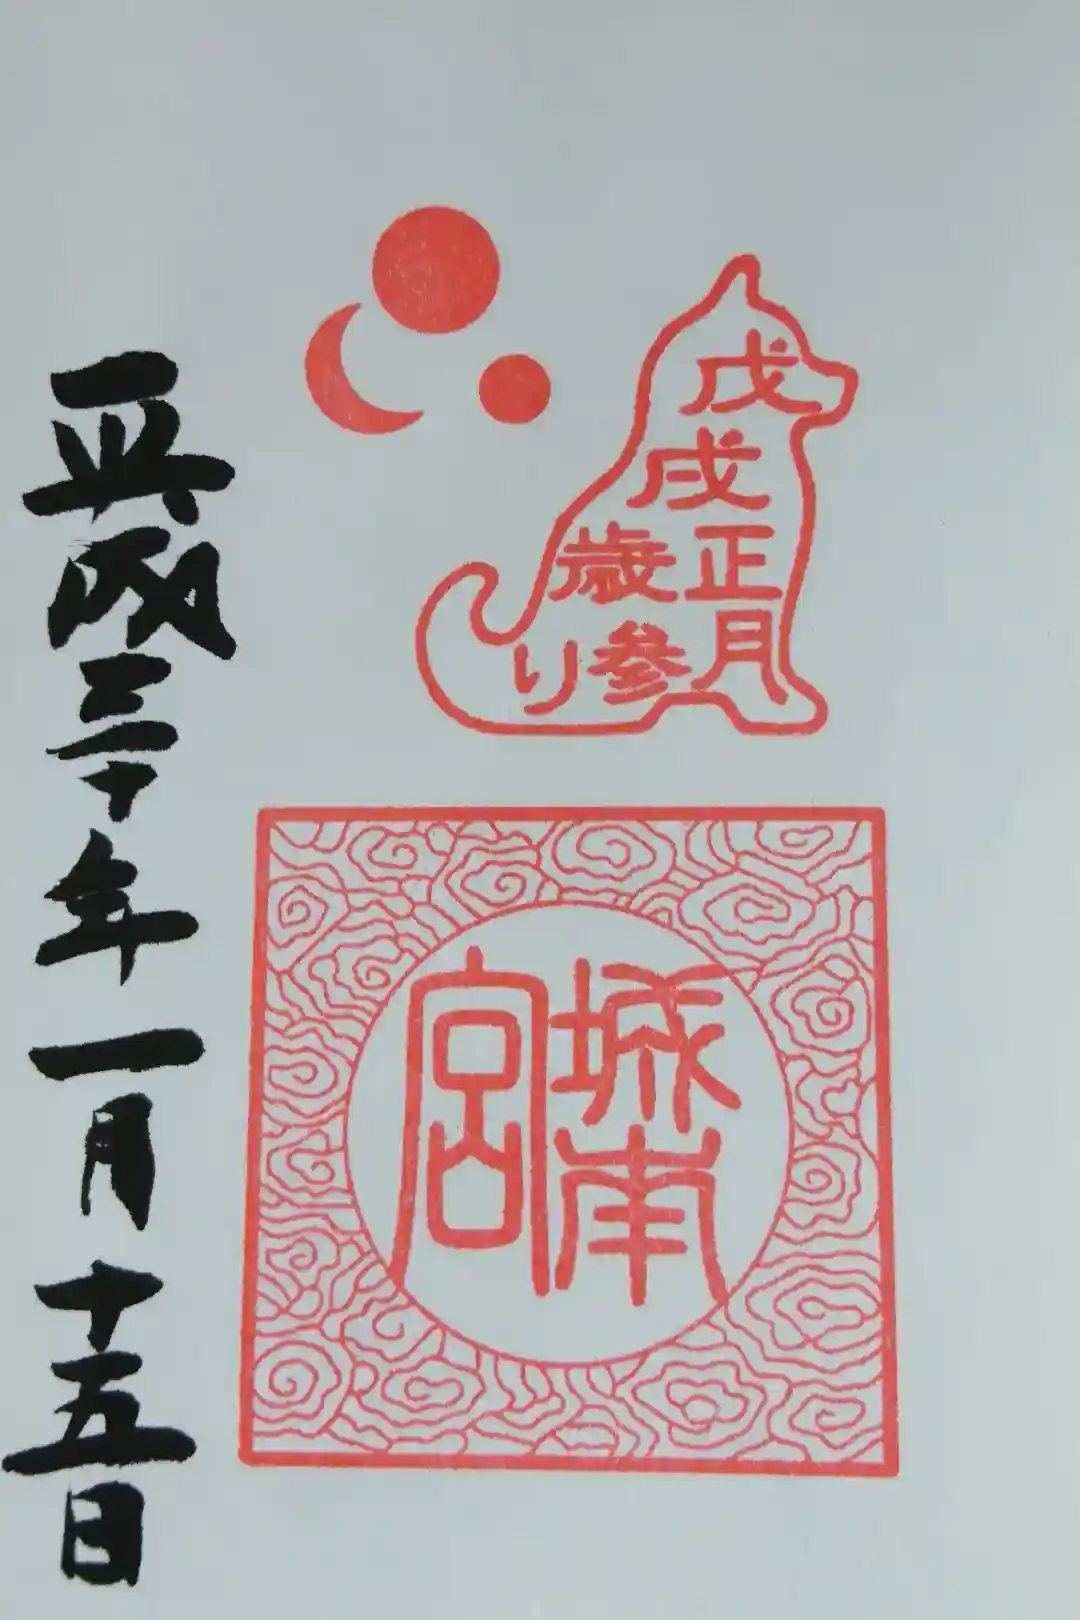 戊戌
正月
歳参り
城南宮
平成三十年一月十五日